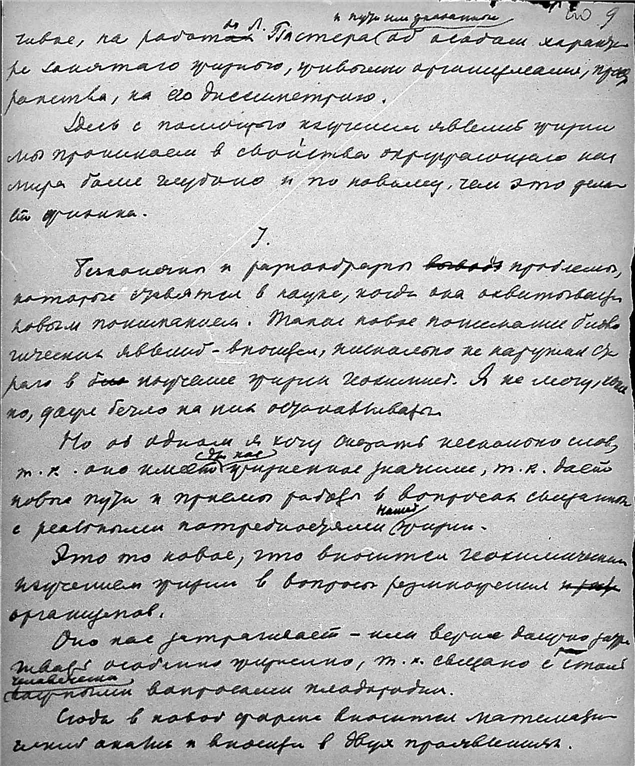 и пути или указанным 9
чивое, на работах Л. Пастера об особом характе-
ре занятого жизнью, живыми организмами, прост-
ранства, на его диссиметрию.
Здесь с помощью изучения явлений жизни
мы проникаем в свойства окружающего нас
мира более глубоко и по новому, чем это дела-
ет физика.
7.
Бесконечны и разнообразны проблемы,
которые ставятся в науке, когда она охватывается
новым пониманием. Такое новое понимание биоло-
гических явлений - вносит, нисколько не нарушая ста-
рого в изучение жизни геохимией. Я не могу, коне-
но, даже бегло на них останавливаться.
Но об одном я хочу сказать несколько слов,
для нас
т.к. оно имеет жизненное значение, т.к. дает
новые пути и приемы работы в вопросах связанных
нашей
с реальными потребностями жизни.
Это то новое, что вносится геохимическим
изучением жизни в вопросы размножения
организмов.
Оно нас затрагивает - или вернее должно затра-
гивать особенно жизненно, т.к. связано с столь
человечества
важными вопросами плодородия.
Сюда в новой форме вносится математи-
ческий анализ и вносится в двух проявлениях.